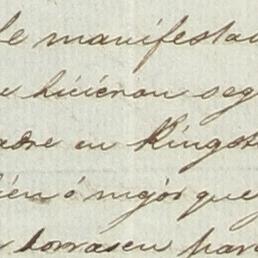 le manifestad
hicieron seg
adre en Kingst
ién ó mejor que
borrasen par